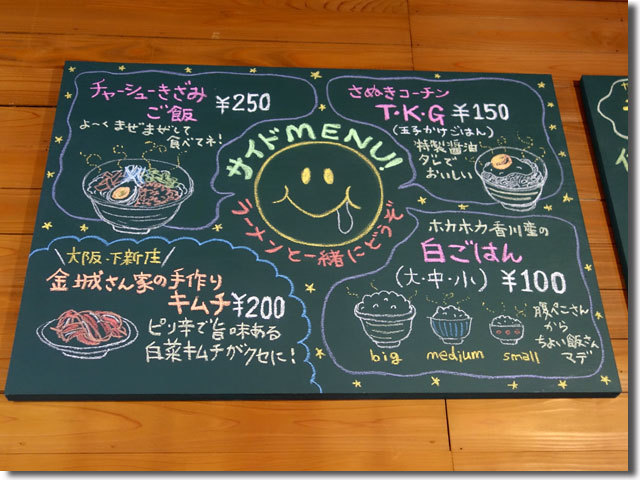 チャーシューきざみ
ご飯 ¥250
よ〜くまぜまぜして
食べてネ!
さぬきコーチン
T・K・G ¥150
(玉子かけごはん)
特製醤油
ダレで
おいしい
サイドMENU!
ラーメンと一緒にどうぞ
大阪・下新庄
金城さん家の手作り
キムチ ¥200
ピリ辛で旨味ある
白菜キムチがクセに!
ホカホカ香川産の
白ごはん
(大・中・小) ¥100
big
medium
small
腹ペこさん
から
ちょい飯さん
マデ